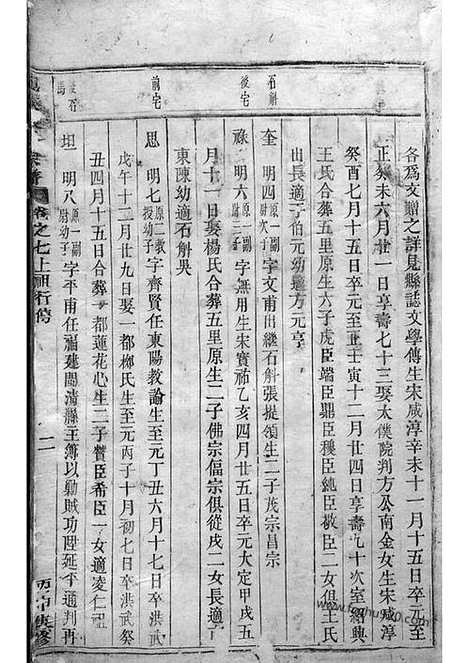 各爲文贈之詳見縣誌文學傳生宋咸淳辛未十一月十五日卒元至
正癸未六月廿一日享壽七十三娶太僕院判方公南金女生宋咸淳
癸酉七月十五日卒元至正壬寅十二月廿四日享壽九十次室紹興
王氏合葬五里原生六子虎臣端臣鼎臣稷臣純臣敬臣二女但王氏
出長適于伯元幼適方元亨
石斛
奎 明四 原一副尉次子 字文甫出繼石斛張提領生二子茂宗昌宗
後宅
祿 明六 原二副尉子 字無用生宋寶祐乙亥四月廿五日卒元大定甲戌五
月十一日娶楊氏合葬五里原生二子佛宗偪宗俱從戌二女長適
東陳幼適石斛吳
前宅
思 明七 原二教授幼子 字齊賢任東陽教諭生至元丁丑六月十七日卒洪武
戊午十二月廿九日娶一都柳氏生至元丙子十月初七日卒洪武癸
丑四月十五日合葬一都蓮花心生二子贊臣希臣一女適凌仁
坦 明八 原一副尉幼子 字平甫任福建閩清縣主簿以勦賊功陞延平通判再
卷之七上 祖行傳
二